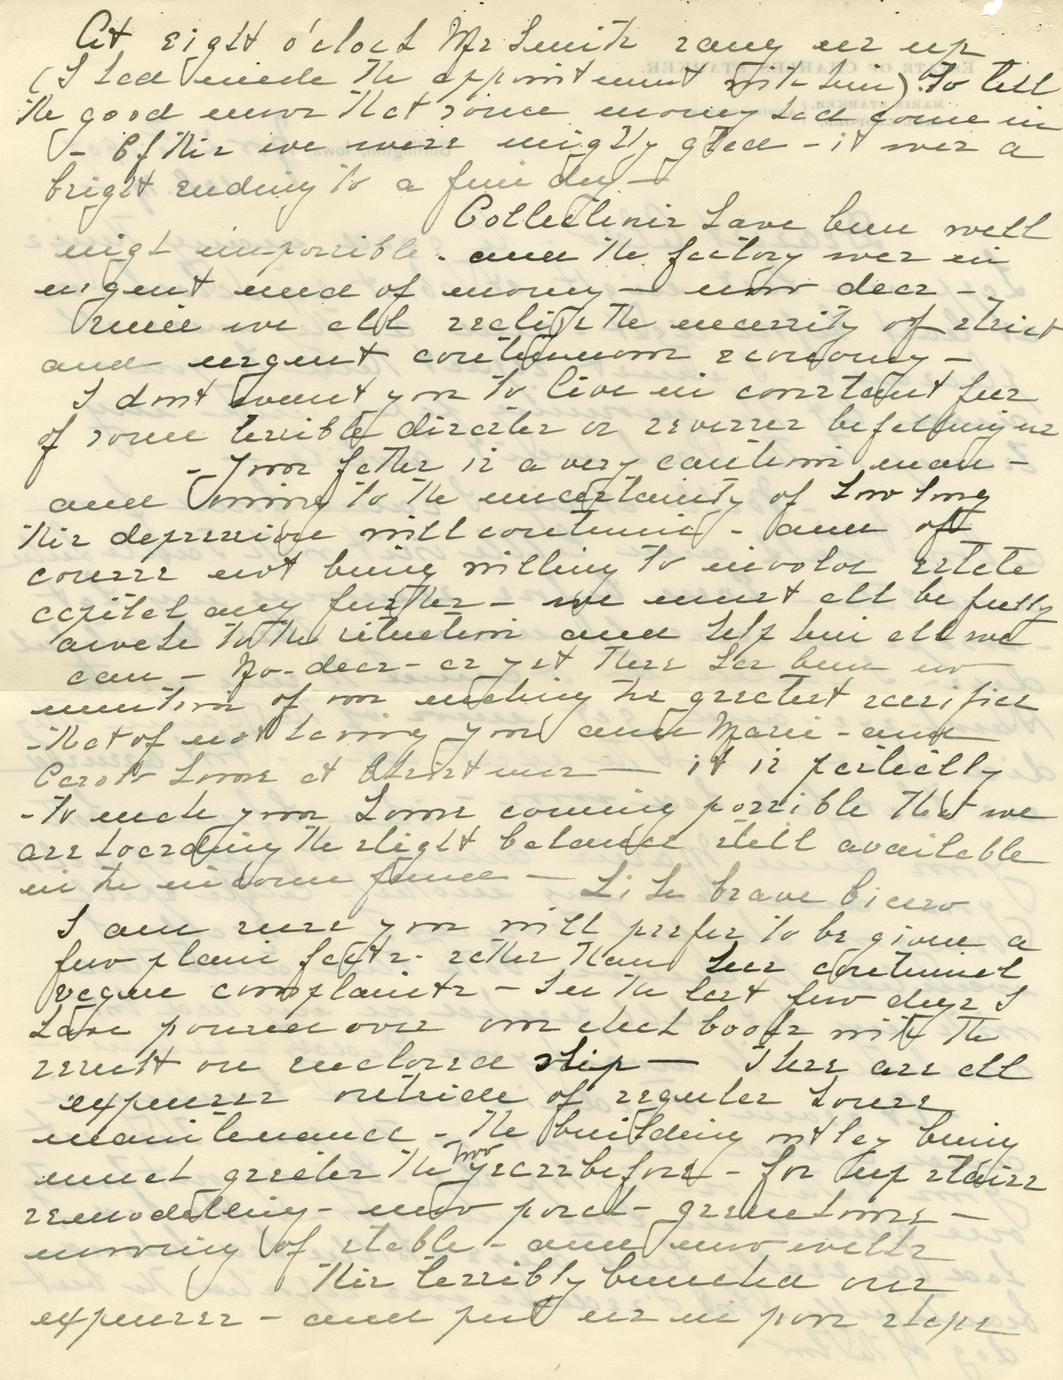 At eight o'clock Mr Smith rang us up
(I had made the appointment with him) to tell
the good news that some money had come in
- Of this we were mighty glad - it was a
bright ending to a fine day -
Collections have been well
nigh impossible. and the factory was in
urgent need of money - now dear -
since we all realize the necessity of strict
and urgent continuous economy -
I dont want you to live in constant fear
of some terrible disaster or reverses befalling us
- Your father is a very cautious man -
and owing to the uncertainty of how long
this depression will continue - and of
course not being willing to involve estate
capital any further - we must all be fully
awake to the situation and help him all we
can - No - dear - as yet there has been no
mention of our making the greatest sacrifice
- that of not having you and Marie - and
Carolo home at Christmas - it is partially
- to make your home coming possible that we
are hoarding the slight balance still available
in the income funce -
I am sure you will prefer to be given a
few plain facts - rather than hear continual
vague complaints - In the last few days I
have poured over our check books with the
result on enclosed slip - These are all
expenses outside of regular house
maintenance - The building outlay being
much greater the two years before - for up stairs
remodelling - new porch - greenhouse -
moving of stable - and new wells
This terribly bunched our
expenses - and put us in poor shape